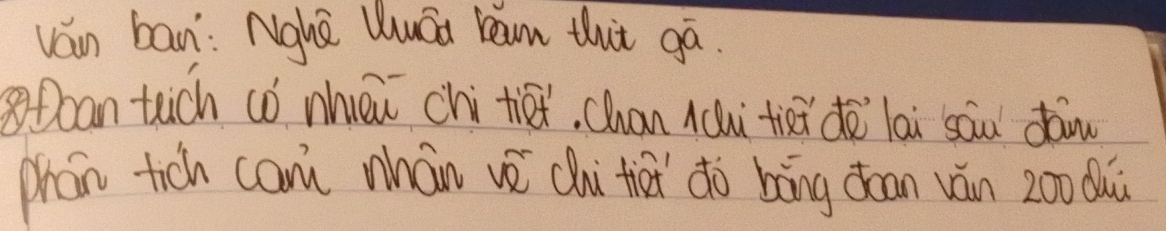 văn bản: Nghệ thuật băm thịt gà.
⑧ Đoạn trích có nhiều chi tiết. Chọn 1 chi tiết để lại sâu đậm
phân tích cảm nhận về chi tiết đó bằng đoạn văn 200 chữ